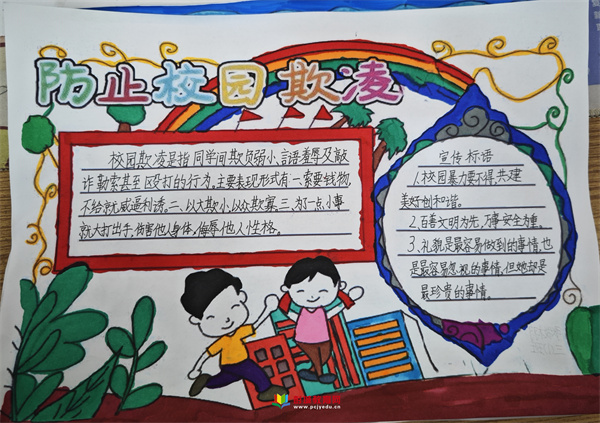 防止校园欺凌
校园欺凌是指同学间欺负弱小、言语羞辱及敲
诈勒索甚至殴打的行为,主要表现形式有一索要钱物,
不给就威逼利诱。二、以大欺小,以众欺寡,三、为了一点小事
就大打出手,伤害他人身体,侮辱他人性格。
宣传标语
1.校园暴力要不得,共建
美好创和谐。
2.百善文明为先,万事安全为重。
3.礼貌是最容易做到的事情,也
是最容易忽视的事情,但她却是
最珍贵的事情。
www.pcjyedu.cn